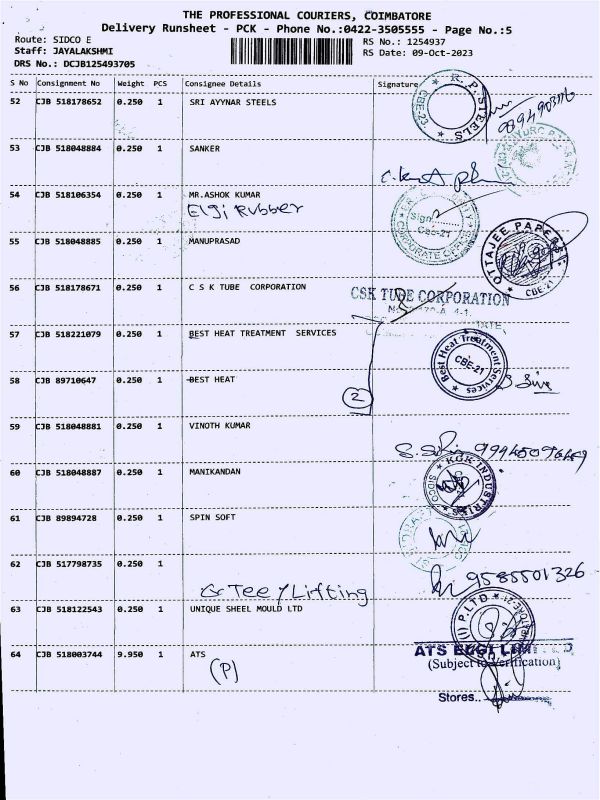 THE PROFESSIONAL COURIERS, COIMBATORE
Delivery Runsheet - PCK - Phone No.:0422-3505555 - Page No.:5
Route: SIDCO E
RS No.: 1254937
Staff: JAYALAKSHMI
RS Date: 09-Oct-2023
DRS No.: DCJB125493705
S No Consignment No Weight PCS Consignee Details Signature
52 CJB 518178652 0.250 1 SRI AYYNAR STEELS
R. P. STEELS CBE-21
53 CJB 518048884 0.250 1 SANKER
54 CJB 518106354 0.250 1 MR.ASHOK KUMAR
Elgi Rubber
Sign
CBE-21
CORPORATE
55 CJB 518048885 0.250 1 MANUPRASAD
OTTAJEE PAPER CBE-21
56 CJB 518178671 0.250 1 C S K TUBE CORPORATION
CSK TUBE CORPORATION
57 CJB 518221079 0.250 1 BEST HEAT TREATMENT SERVICES
Best Heat Treatment Services CBE-21
58 CJB 89710647 0.250 1 BEST HEAT
2
59 CJB 518048881 0.250 1 VINOTH KUMAR
60 CJB 518048887 0.250 1 MANIKANDAN
KGK INDUSTRIES SIDCO
61 CJB 89894728 0.250 1 SPIN SOFT
62 CJB 517798735 0.250 1
Gr Tee / Lifting
9585501326
63 CJB 518122543 0.250 1 UNIQUE SHEEL MOULD LTD
(I) P.LTD
64 CJB 518003744 9.950 1 ATS
(P)
ATS ELGI LIMITED
(Subject to Verification)
Stores..